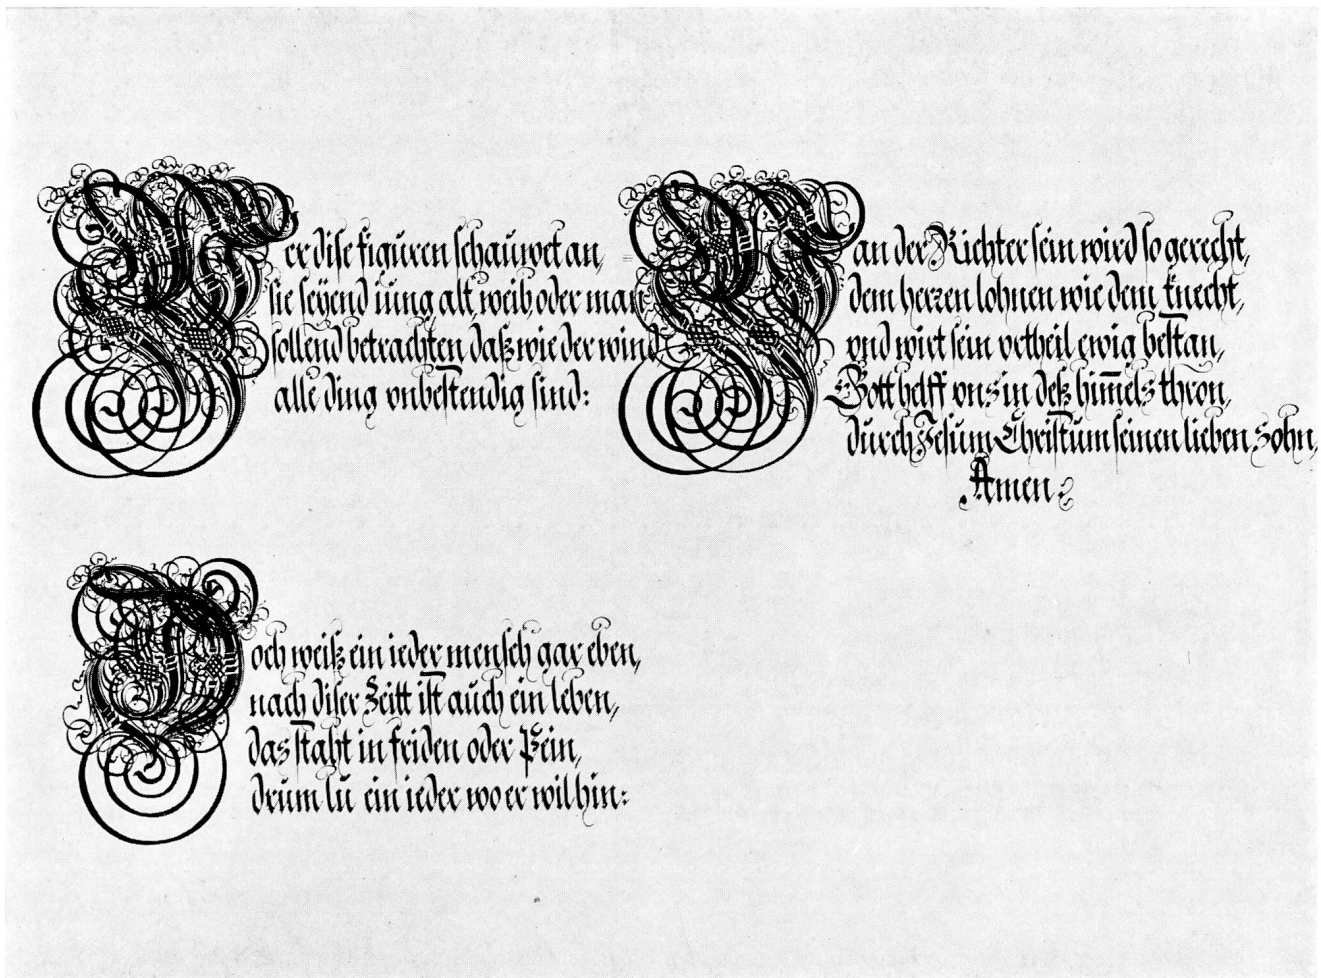 Wer dise figuren schauwet an,
sie seÿend iung alt, weib, oder man
sollend betrachten daß wie der wind
alle ding vnbestendig sind:
Doch weiß ein ieder mensch gar eben,
nach diser Zeitt ist auch ein leben,
das staht in friden oder Pein,
drum lu ein ieder wo er wil hin:
Wan der Richter sein wird so gerecht,
dem herren lohnen wie dem knecht,
vnd wirt sein vrtheil ewig bestan,
Gott helff vns in deß him̄els thron,
durch Jesum Christum seinen lieben Sohn,
Amen